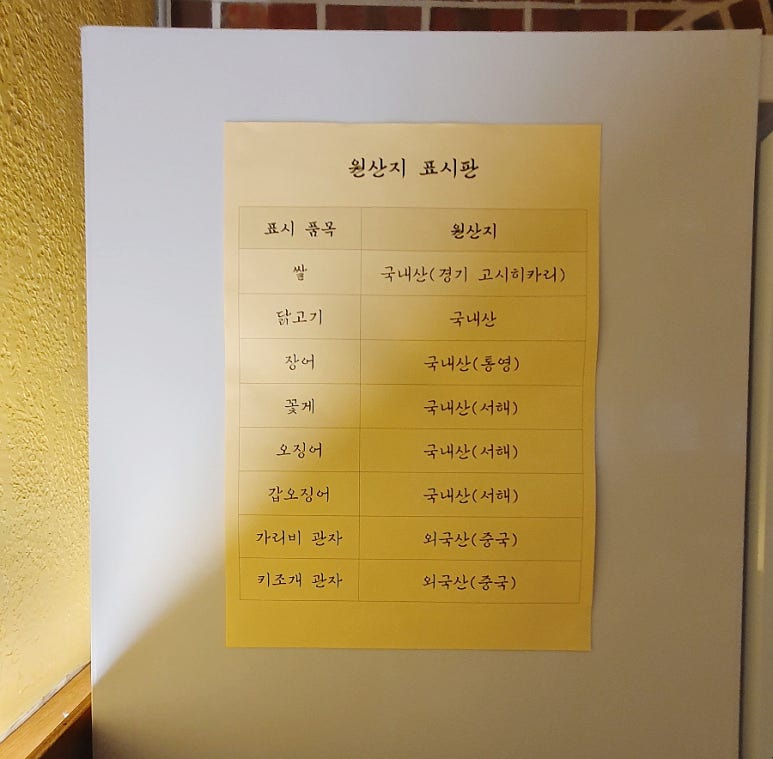 원산지 표시판
표시 품목 원산지
쌀 국내산(경기 고시히카리)
닭고기 국내산
장어 국내산(통영)
꽃게 국내산(서해)
오징어 국내산(서해)
갑오징어 국내산(서해)
가리비 관자 외국산(중국)
키조개 관자 외국산(중국)